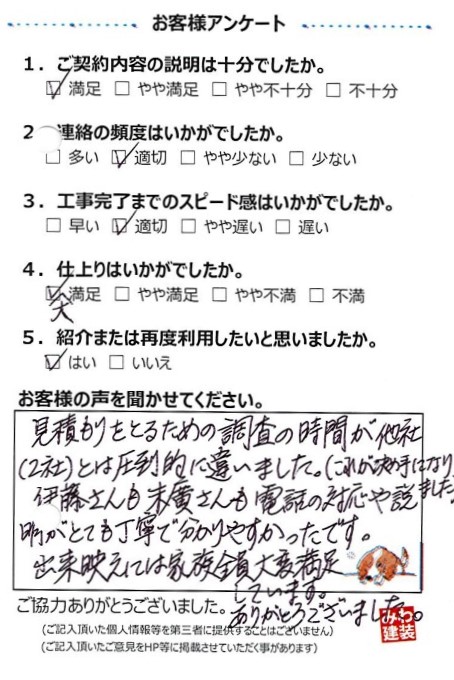 お客様アンケート
1．ご契約内容の説明は十分でしたか。
☑ 満足 □ やや満足 □ やや不十分 □ 不十分
2 連絡の頻度はいかがでしたか。
□ 多い ☑ 適切 □ やや少ない □ 少ない
3．工事完了までのスピード感はいかがでしたか。
□ 早い ☑ 適切 □ やや遅い □ 遅い
4．仕上りはいかがでしたか。
☑ 満足 □ やや満足 □ やや不満 □ 不満
大
5．紹介または再度利用したいと思いましたか。
☑ はい □ いいえ
お客様の声を聞かせてください。
見積もりをとるための調査の時間が他社
(2社)とは圧倒的に違いました。(これが決め手になり
ました)
伊藤さんも末廣さんも電話の対応や説
明がとても丁寧で分かりやすかったです。
出来映えには家族全員大変満足
しています。
ありがとうございました。
ご協力ありがとうございました。
(ご記入頂いた個人情報等を第三者に提供することはございません)
(ご記入頂いたご意見をHP等に掲載させていただく事があります)
みわ
建装